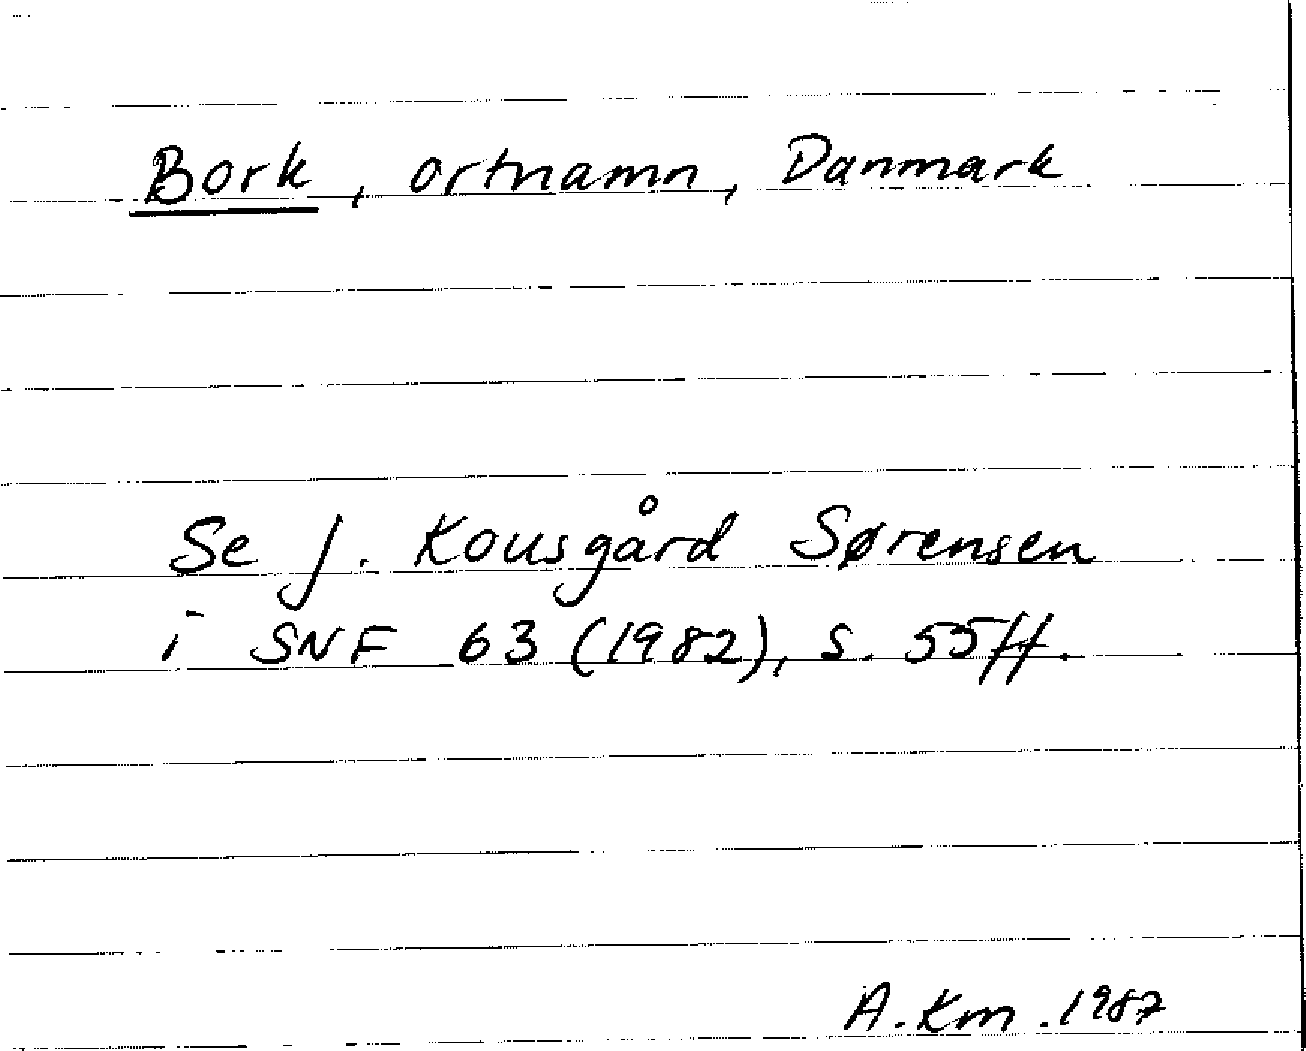 Bork, ortnamn, Danmark
Se J. Kousgård Sørensen
i SNF 63 (1982), s. 55ff.
A. Km. 1987